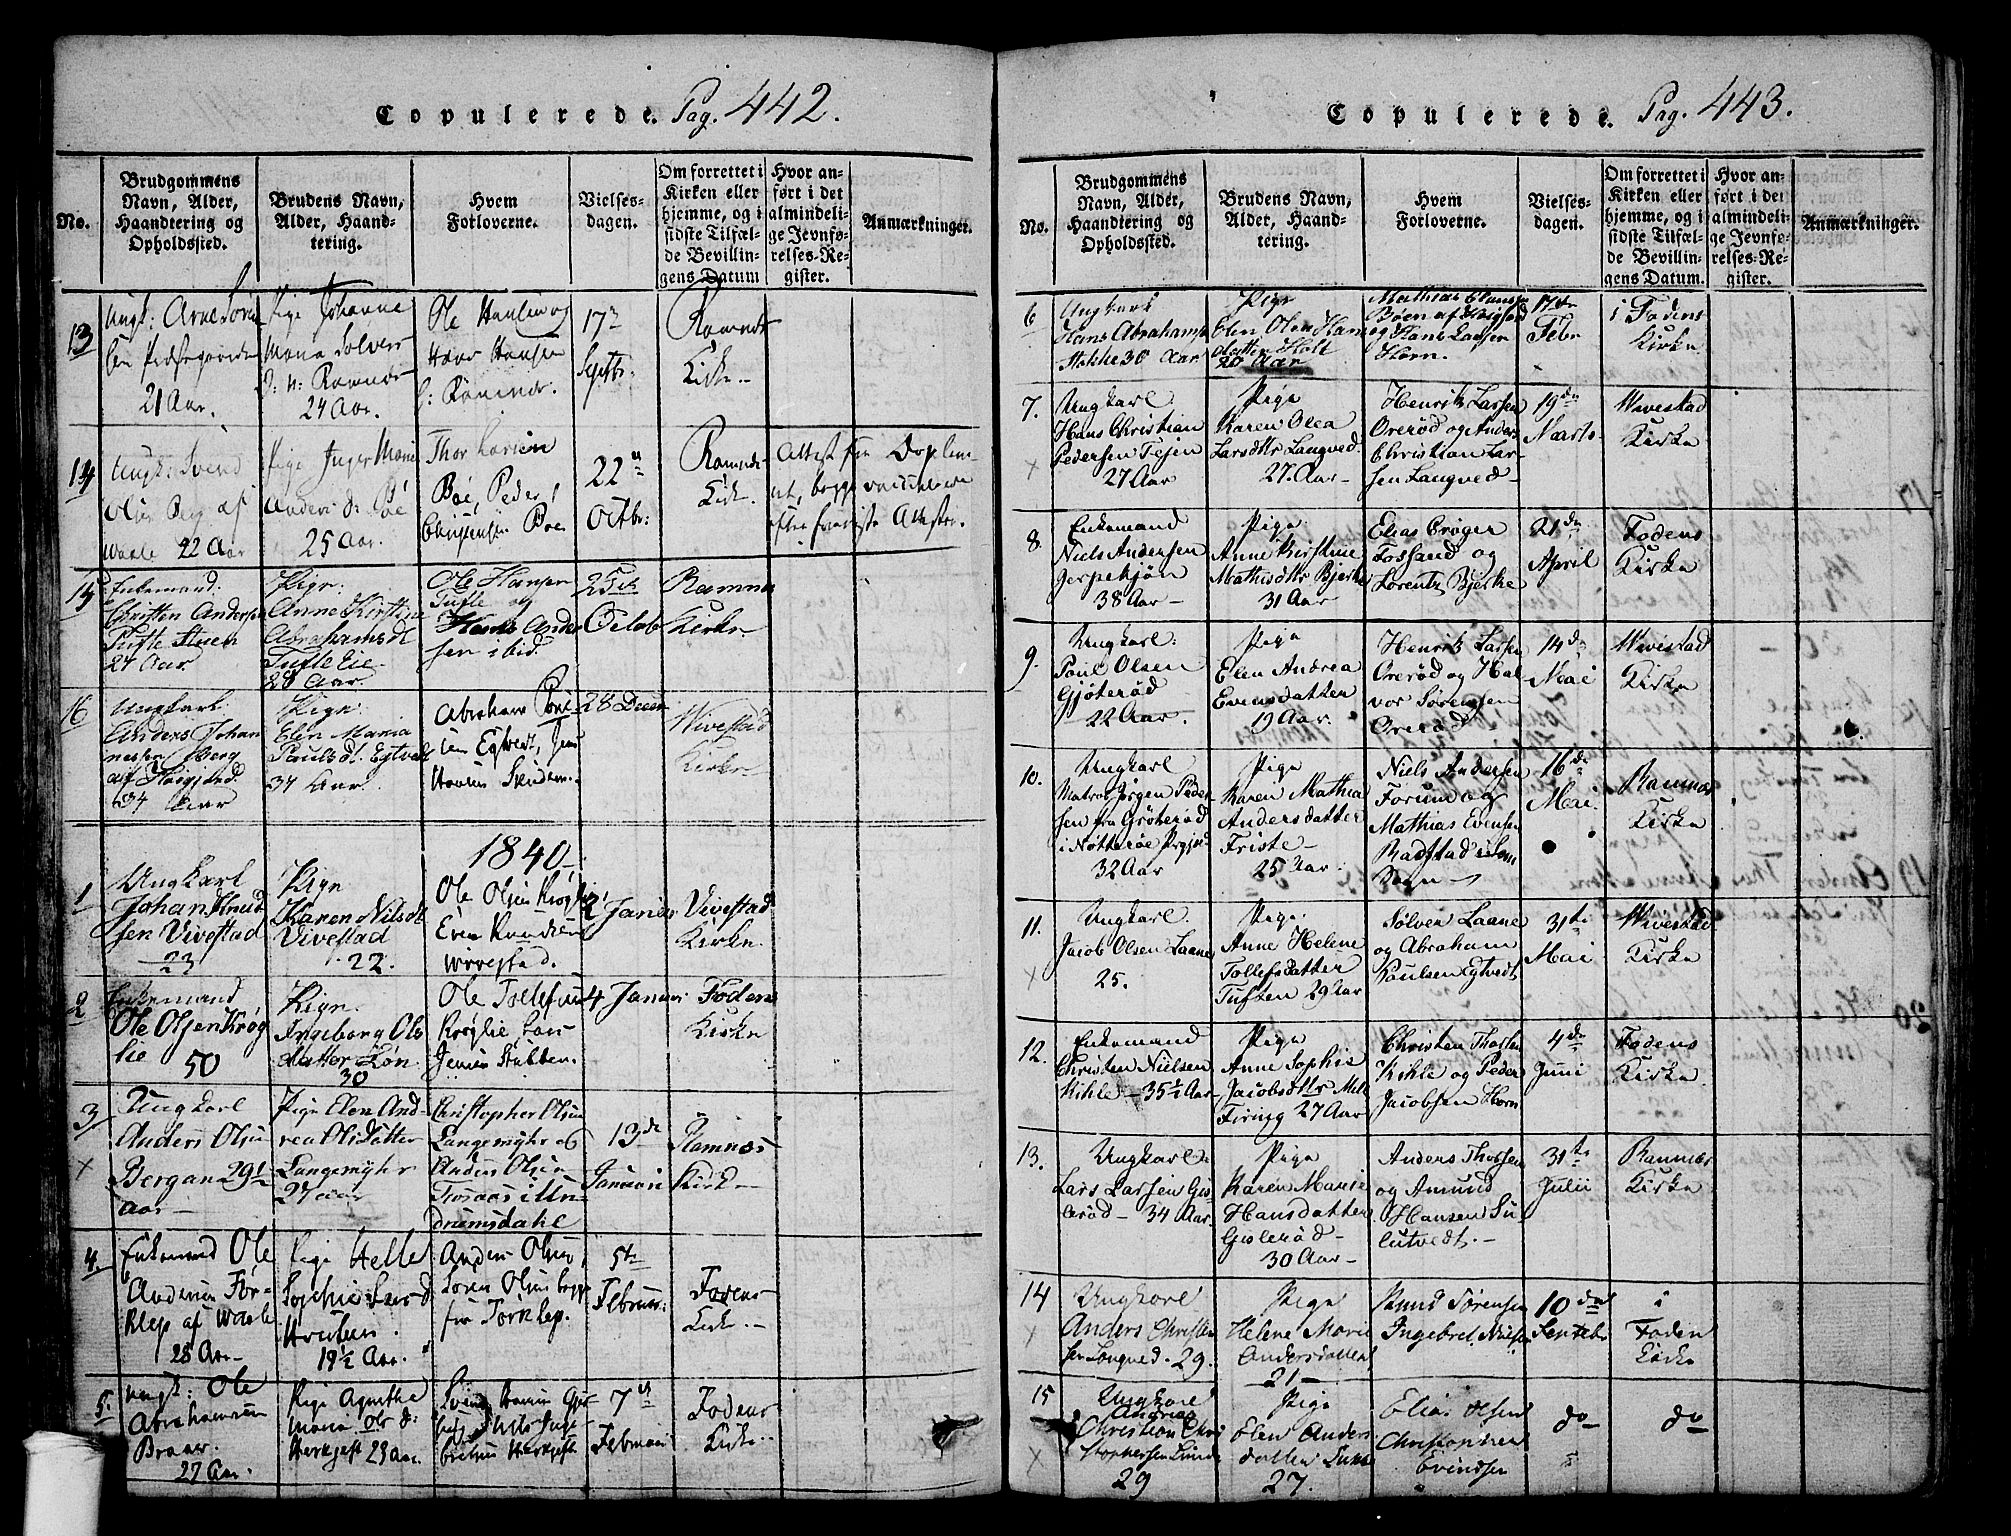 Copulerede. Pag. 442.
No.
Brudgommens Navn, Alder, Haandtering og Opholdssted.
Brudens Navn, Alder, Haandtering.
Hvem Forloverne.
Vielsesdagen.
Om forrettet i Kirken eller hjemme, og i sidste Tilfælde Bevillingens Datum
Hvor anført i det almindelige Jevnførelses-Register.
Anmærkninger.
13
Ungk: Arne
21 Aar.
Pige Johanne
Maria Solver
d: n: Ramnæs
24 Aar.
Ole Hansen og
Hans Hansen
17
Septbr:
Ramnæs
Kirke
14
Ungk: Svend
Olsen Berg af
Waale 22 Aar
Pige Inger Marie
Anders d: Bøe
25 Aar.
Thor Larsen
Bøe, Peder
Christensen Bøe
22
Octbr:
Ramnæs
Kirke.
Attest for
15
Enkemand:
Christen Andersen
Tufte
27 Aar
Pige:
Anne Kirstine
Abrahamsd
Tufte Eie
28 Aar.
Ole Hansen
Tufte og
Hans Ander
sen ibid.
25
Octob
Ramnæs
Kirke
16
Ungkarl
Anders Johan
nesen Berg
34 Aar
Pige:
Elen Maria
Paulsd. Egtvedt
34 Aar.
Abraham
sen Egtvedt, Jens
28 Decem
Wivestad
Kirke
1840
1
Ungkarl
Johan Knud
sen Vivestad
23
Pige
Karen Nilsdt
Vivestad
22.
Ole Olsen Krøglie
Even Knudsen
Wivestad.
2 Januar
Vivestad
Kirke
2
Enkemand
Ole Olsen Krøg
lie
50
Pige
Ingeborg Ols
datter Lon
30
Ole Tollefsen
Krøglie
4 Januar
Fodens
Kirke
3
Ungkarl
Anders Olsen
Bergan 29½
aar
Pige Elen And-
rea Olsdatter
Langemyhr
27 aar
Christopher Olsen
Langemyhr og
Anders Olsen
13de
Januari
Ramnæs
Kirke
4.
Enkemand Ole
Andersen Før-
klep af Waale
28 Aar
Pige Helle
Sophie Lars d
19½ Aar.
Anders Olsen,
Søren Olsen begge
fra Førklep.
5te
Februar:
Fodens
Kirke.
5.
Ungk: Ole
Abrahamsen
Braar.
27 Aar.
Pige Agnethe
Maria Ols d:
23 aar.
7
Februari
Fodens
Kirke.
Copulerede. Pag. 443.
No.
Brudgommens Navn, Alder, Haandtering og Opholdssted.
Brudens Navn, Alder, Haandtering.
Hvem Forloverne.
Vielsesdagen.
Om forrettet i Kirken eller hjemme, og i sidste Tilfælde Bevillingens Datum.
Hvor anført i det almindelige Jevnførelses-Register.
Anmærkninger.
6
Ungkarl
Hans Abrahams
30 Aar
Pige
Elen Olea Hans
datter Holt
20 Aar
Mathias Clausen
og Hans Larsen
Horn.
17de
Febr
i Fodens
Kirke
7.
Ungkarl
Hans Christian
Pedersen Fejen
27 Aar
Pige
Karen Olea
Larsdtr Langved.
27. Aar
Henrik Larsen
Orerød og Anders
Christian Lar-
sen Langved
19de
Marts
Wivestad
Kirke
8.
Enkemand
Niels Andersen
Jerpekjøn
38 Aar
Pige
Anne Kirstine
Mathisdtr Bjerke
31 Aar
Elias Crøger
Fossand og
Lorentz Bjerke
21de
April
Fodens
Kirke
9.
Ungkarl:
Poul Olsen
Gjøterød
22 Aar.
Pige
Elen Andrea
Evensdatter
19 Aar.
Henrik Larsen
Orerød og Hal
vor Sørensen
Orerød
14de
Mai
Wivestad
Kirke
10.
Ungkarl
Matros Jørgen Peder-
sen fra Grøterød
i Nøtterøe Prgjæld
32 Aar
Pige
Karen Mathia
Andersdatter
Friste
25 Aar
Niels Andersen
Forum og
Mathias Evensen
Radstad i Sem
Sogn
16de
Mai
Ramnæs
Kirke
11.
Ungkarl
Jacob Olsen Laane
25.
Pige
Anne Helene
Tollefsdatter
Tufsen 29 Aar
Sølver Laane
og Abraham
Paulsen Egtvedt
31te
Mai
Wivestad
Kirke
12.
Enkemand
Christen Nielsen
Kihle 35½ Aar
Pige
Anne Sophie
Jacobsdtr
27 Aar
Christen Thorsen
Kihle og Peder
Jacobsen Horn
4de
Juni
Fodens
Kirke
13.
Ungkarl:
Lars Larsen Gis-
lerød 34 Aar.
Pige
Karen Marie
Hansdatter
Gislerød
30 Aar
Anders Thorsen
og Amund
Hansen Su-
lutvedt.
31te
Julii
Ramnæs
Kirke
14
Ungkarl
Anders Christen
sen Langved. 29.
Pige
Helene Marie
Andersdatter
21
Knud Sørensen
Ingebret Nielsen
10de
Septebr
i
Foden
Kirke
15
Ungkarl
Andreas
Christian Chri
stophersen Linde
29
Pige
Elen Anders
datter
27.
Elias Olsen
Christopher
Evindsen
do
do